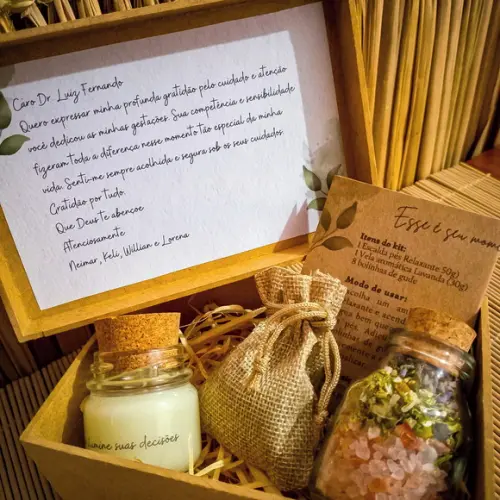 Caro Dr. Luiz Fernando
Quero expressar minha profunda gratidão pelo cuidado e atenção
você dedicou as minhas gestações. Sua competência e sensibilidade
fizeram toda a diferença nesse momento tão especial da minha
vida. Senti-me sempre acolhida e segura sob os seus cuidados.
Gratidão por tudo.
Que Deus te abençoe
Atenciosamente
Neimar, Keli, Willian e Lorena
Esse é seu mom
Itens do kit:
1 Escalda pés Relaxante 50g)
1 Vela aromática Lavanda (30g)
8 bolinhas de gude
Modo de usar:
um
e
suas decisões